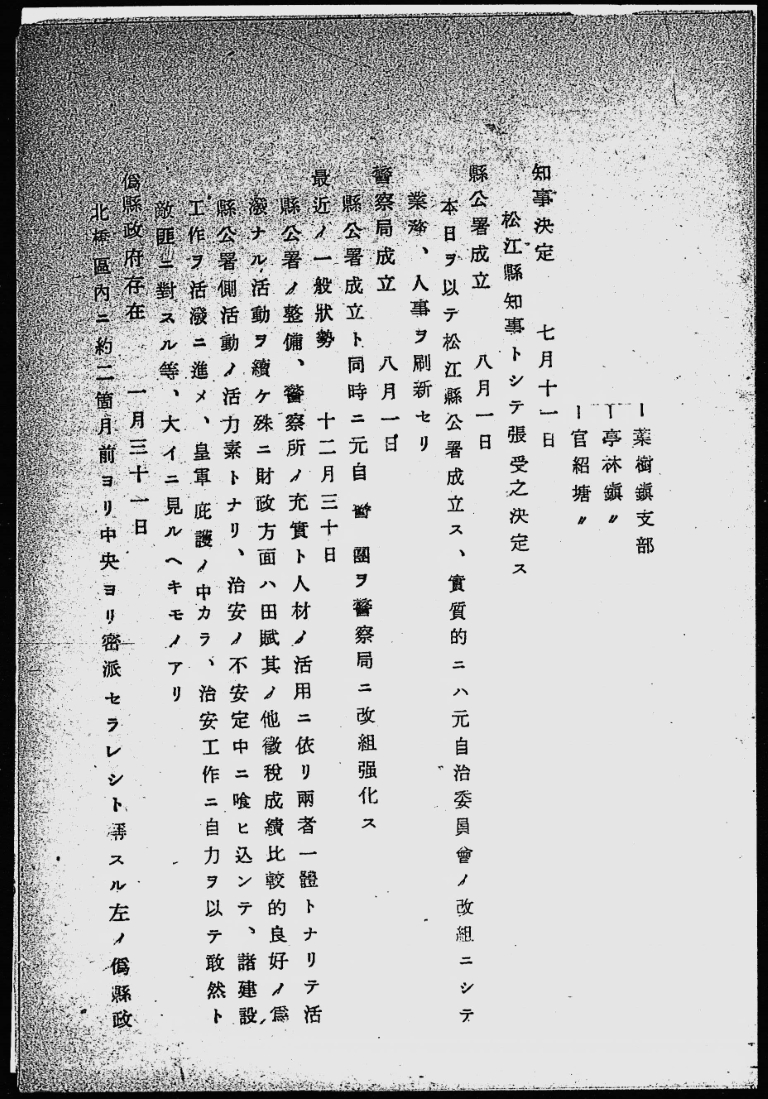 ー葉樹鎭支部
ー亭林鎭〃
ー官紹塘〃
知事決定　七月十一日
松江縣知事トシテ張受之決定ス
縣公署成立　八月一日
本日ヲ以テ松江縣公署成立ス、實質的ニハ元自治委員會ノ改組ニシテ
業務、人事ヲ刷新セリ
警察局成立　八月一日
縣公署成立ト同時ニ元自團ヲ警察局ニ改組强化ス
最近ノ一般狀勢　十二月三十日
縣公署ノ整備、警察所ノ充實ト人材ノ活用ニ依リ兩者一體トナリテ活
潑ナル活動ヲ續ケ殊ニ財政方面ハ田賦其ノ他徵稅成績比較的良好ノ爲
縣公署側活動ノ活力素トナリ、治安ノ不安定中ニ喰ヒ込ンテ、諸建設
工作ヲ活潑ニ進メ、皇軍庇護ノ中カラ、治安工作ニ自力ヲ以テ敢然ト
敵匪ニ對スル等、大イニ見ルヘキモノアリ
僞縣政府存在　一月三十一日
北橋區內ニ約二箇月前ヨリ中央ヨリ密派セラレシト稱スル左ノ僞縣政